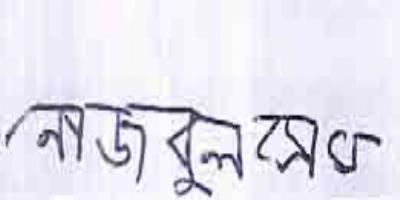 নাজবুল সেখ